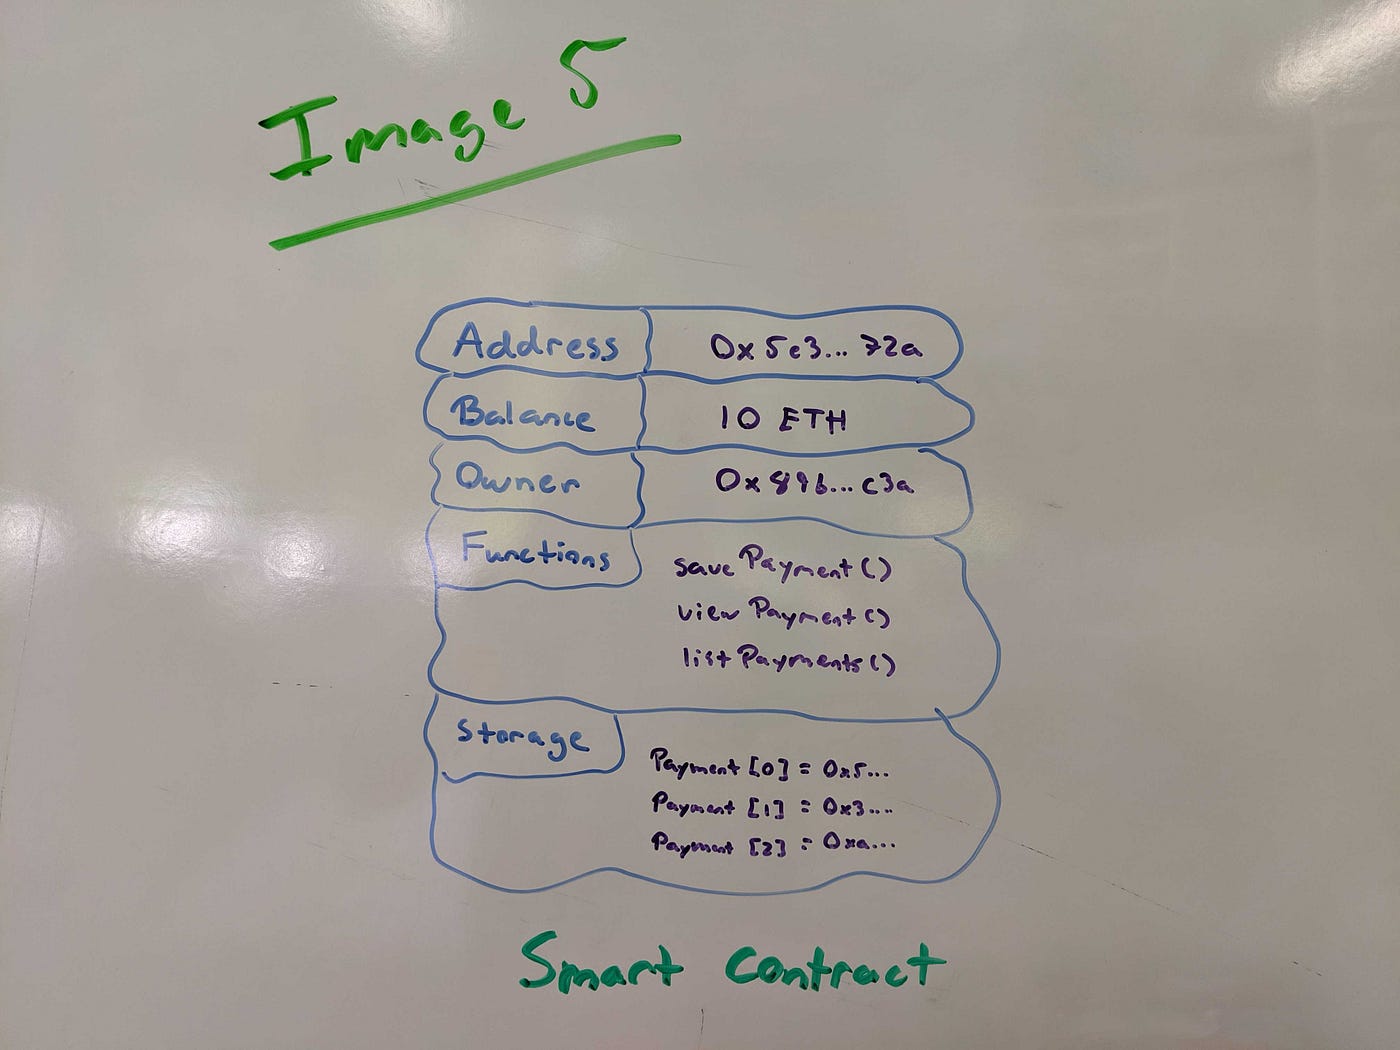 Image 5
Address 0x5e3... 72a
Balance 10 ETH
Owner 0x89b... c3a
Functions
savePayment()
viewPayment()
listPayments()
Storage
Payment [0] = 0x5...
Payment [1] = 0x3...
Payment [2] = 0xa...
Smart Contract